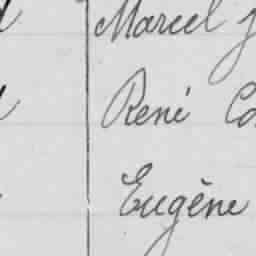 Marcel
René
Eugène